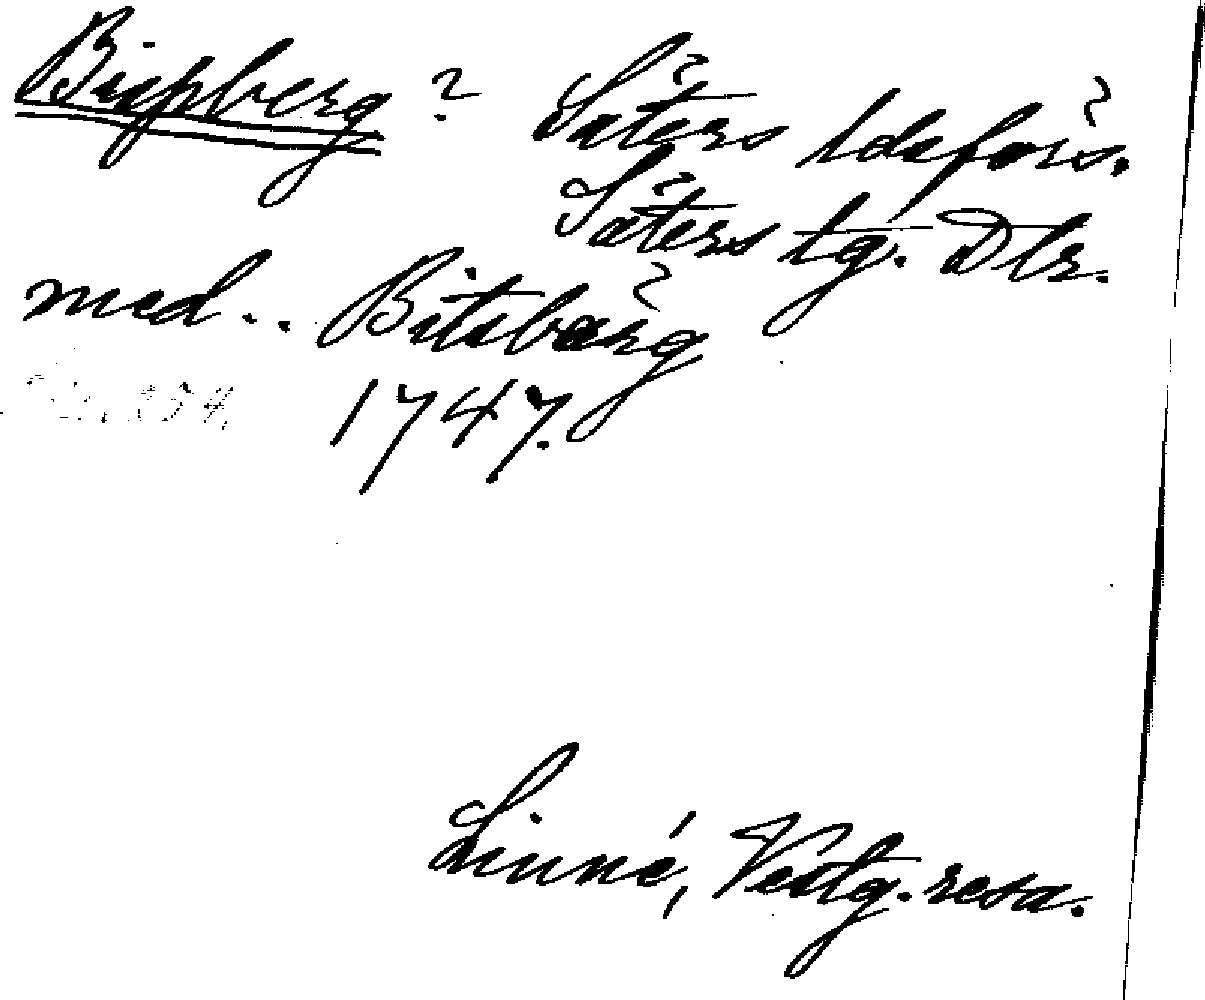 Bispberg? Säters ldsförs.
Säters tg. Dlr.
med.. Bitsbärg
1747.
Linné, Vestg. resa.